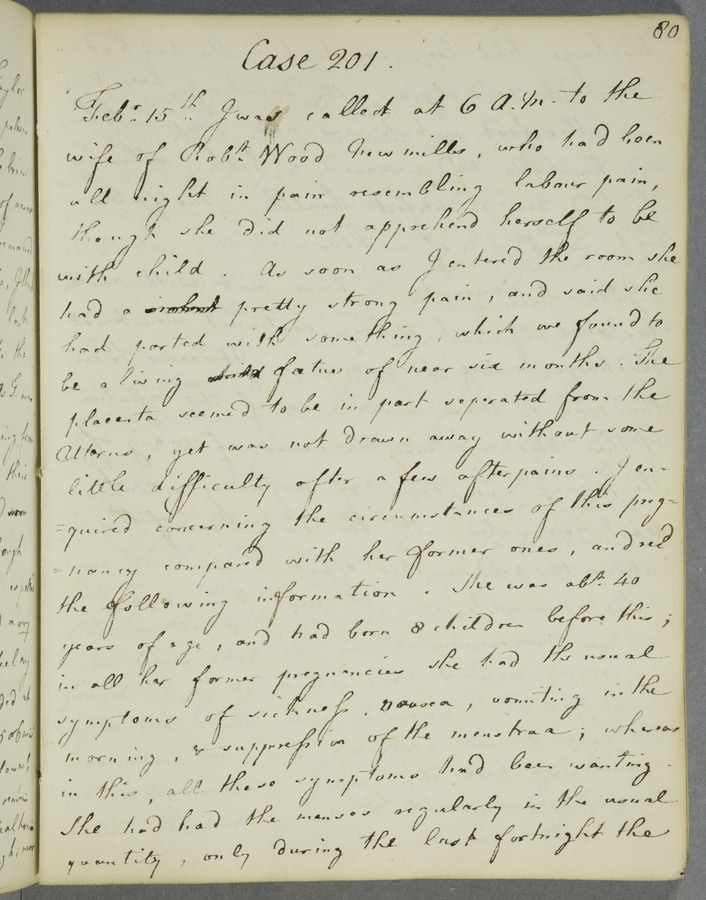 80
Case 201.
Febr. 15th. I was called at 6 A.M. to the
wife of Robt. Wood Newmills, who had been
all night in pain resembling labour pain,
though she did not apprehend herself to be
with child. As soon as I entered the room she
had a violent pretty strong pain, and said she
had parted with something, which we found to
be a living child fœtus of near six months. The
placenta seemed to be in part seperated from the
Uterus, yet was not drawn away without some
little difficulty after a few afterpains. I en-
=quired concerning the circumstances of this preg=
=nancy compared with her former ones, and recd
the following information. She was abt. 40
years of age, and had born 8 children before this;
in all her former pregnancies she had the usual
symptoms of sickness, nausea, vomiting in the
morning, & suppression of the menstrua; whereas
in this, all these symptoms had been wanting.
She had had the menses regularly in the usual
quantity, only during the last fortnight the